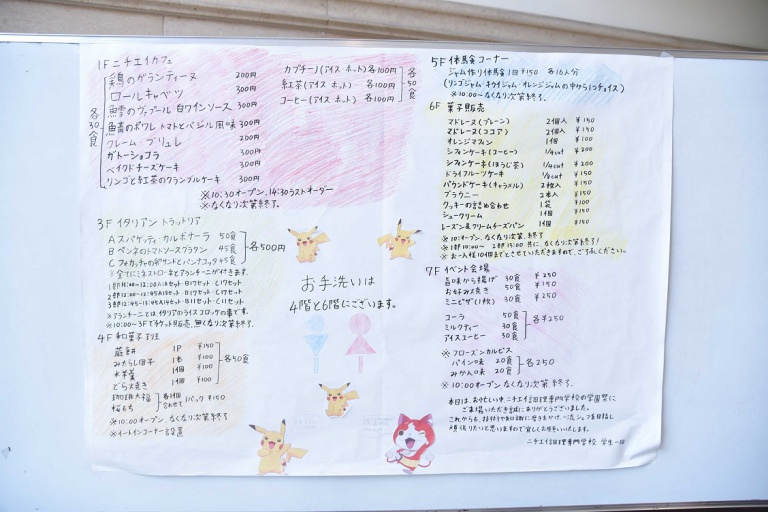 1F ニチエイカフェ
鶏のガランティーヌ 200円
ロールキャベツ 300円
魚のヴァプール 白ワインソース 300円
魚のポワレ トマトとバジル風味 300円
クレーム・ブリュレ 200円
ガトーショコラ 300円
ベイクドチーズケーキ 300円
リンゴと紅茶のクランブルケーキ 300円
各30食
カプチーノ(アイス・ホット) 各100円
紅茶(アイス・ホット) 各100円
コーヒー(アイス・ホット) 各100円
各50食
※10:30オープン、14:30ラストオーダー
※なくなり次第終了。
3F イタリアン トラットリア
A スパゲッティ・カルボナーラ 50食
B ペンネのトマトソースグラタン 45食
C フォカッチャのサンドとパンナコッタ 45食
各500円
※全てにミネストローネとアランチーニが付きます。
※アランチーニとは、イタリアのライスコロッケの事です。
※10:00~3Fでチケット販売、無くなり次第終了。
4F 和菓子
蕨餅 1P ¥150
みたらし団子 1本 ¥100
水羊羹 1個 ¥100
どら焼き 1個 ¥100
各50食
珈琲大福
桜もち
各1個 合わせて 1パック ¥150
※10:00オープン、なくなり次第終了
※イートインコーナー設置
お手洗いは
4階と6階にございます。
5F 体験コーナー
ジャム作り体験 1回 ¥150 各10人分
(リンゴジャム・キウイジャム・オレンジジャムの中から1つチョイス)
※10:00~なくなり次第終了。
6F 菓子販売
マドレーヌ(プレーン) 2個入 ¥150
マドレーヌ(ココア) 2個入 ¥150
オレンジマフィン 1個 ¥100
シフォンケーキ(コーヒー) 1/4cut ¥200
シフォンケーキ(ほうじ茶) 1/4cut ¥200
ドライフルーツケーキ 1/8cut ¥150
パウンドケーキ(キャラメル) 2枚入 ¥150
ブラウニー 2本入 ¥150
クッキーの詰め合わせ 1袋 ¥100
シュークリーム 1個 ¥150
レーズン&クリームチーズパン 1個 ¥150
※10:00オープン、なくなり次第終了
※お一人様10個までとさせていただきますので、ご了承ください。
7F イベント会場
旨味から揚げ 30食 ¥250
お好み焼き 50食 ¥150
ミニピザ(1枚) 30食 ¥250
コーラ 50食
ミルクティー 30食
アイスコーヒー 30食
各¥250
※フローズンカルピス
パイン味 20食
みかん味 20食
各250
※10:00オープン なくなり次第終了。
本日は、お忙しい中ニチエイ調理専門学校の学園祭に
ご来場いただき誠にありがとうございました。
頑張りたいと思いますので宜しくお願いいたします。
ニチエイ調理専門学校 学生一同